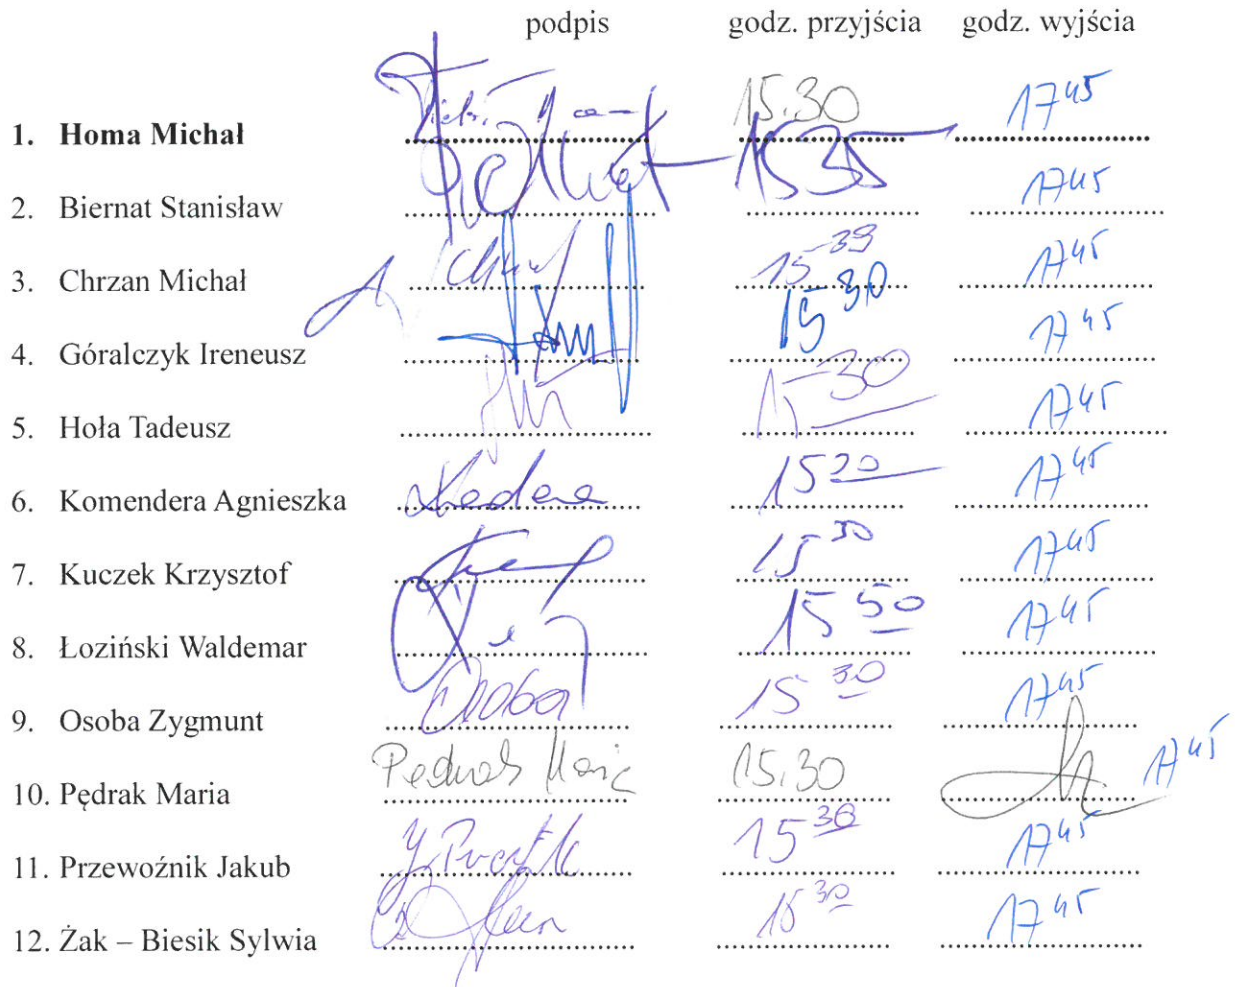 podpis godz. przyjścia godz. wyjścia
1. Homa Michał 15.30 17 45
2. Biernat Stanisław 15 35 17 45
3. Chrzan Michał 15 39 17 45
4. Góralczyk Ireneusz 15 30 17 45
5. Hoła Tadeusz 15 30 17 45
6. Komendera Agnieszka 15 20 17 45
7. Kuczek Krzysztof 15 30 17 45
8. Łoziński Waldemar 15 50 17 45
9. Osoba Zygmunt Osoba 15 30 17 45
10. Pędrak Maria Pędrak Maria 15.30 17 45
11. Przewoźnik Jakub 15 30 17 45
12. Żak – Biesik Sylwia 15 30 17 45